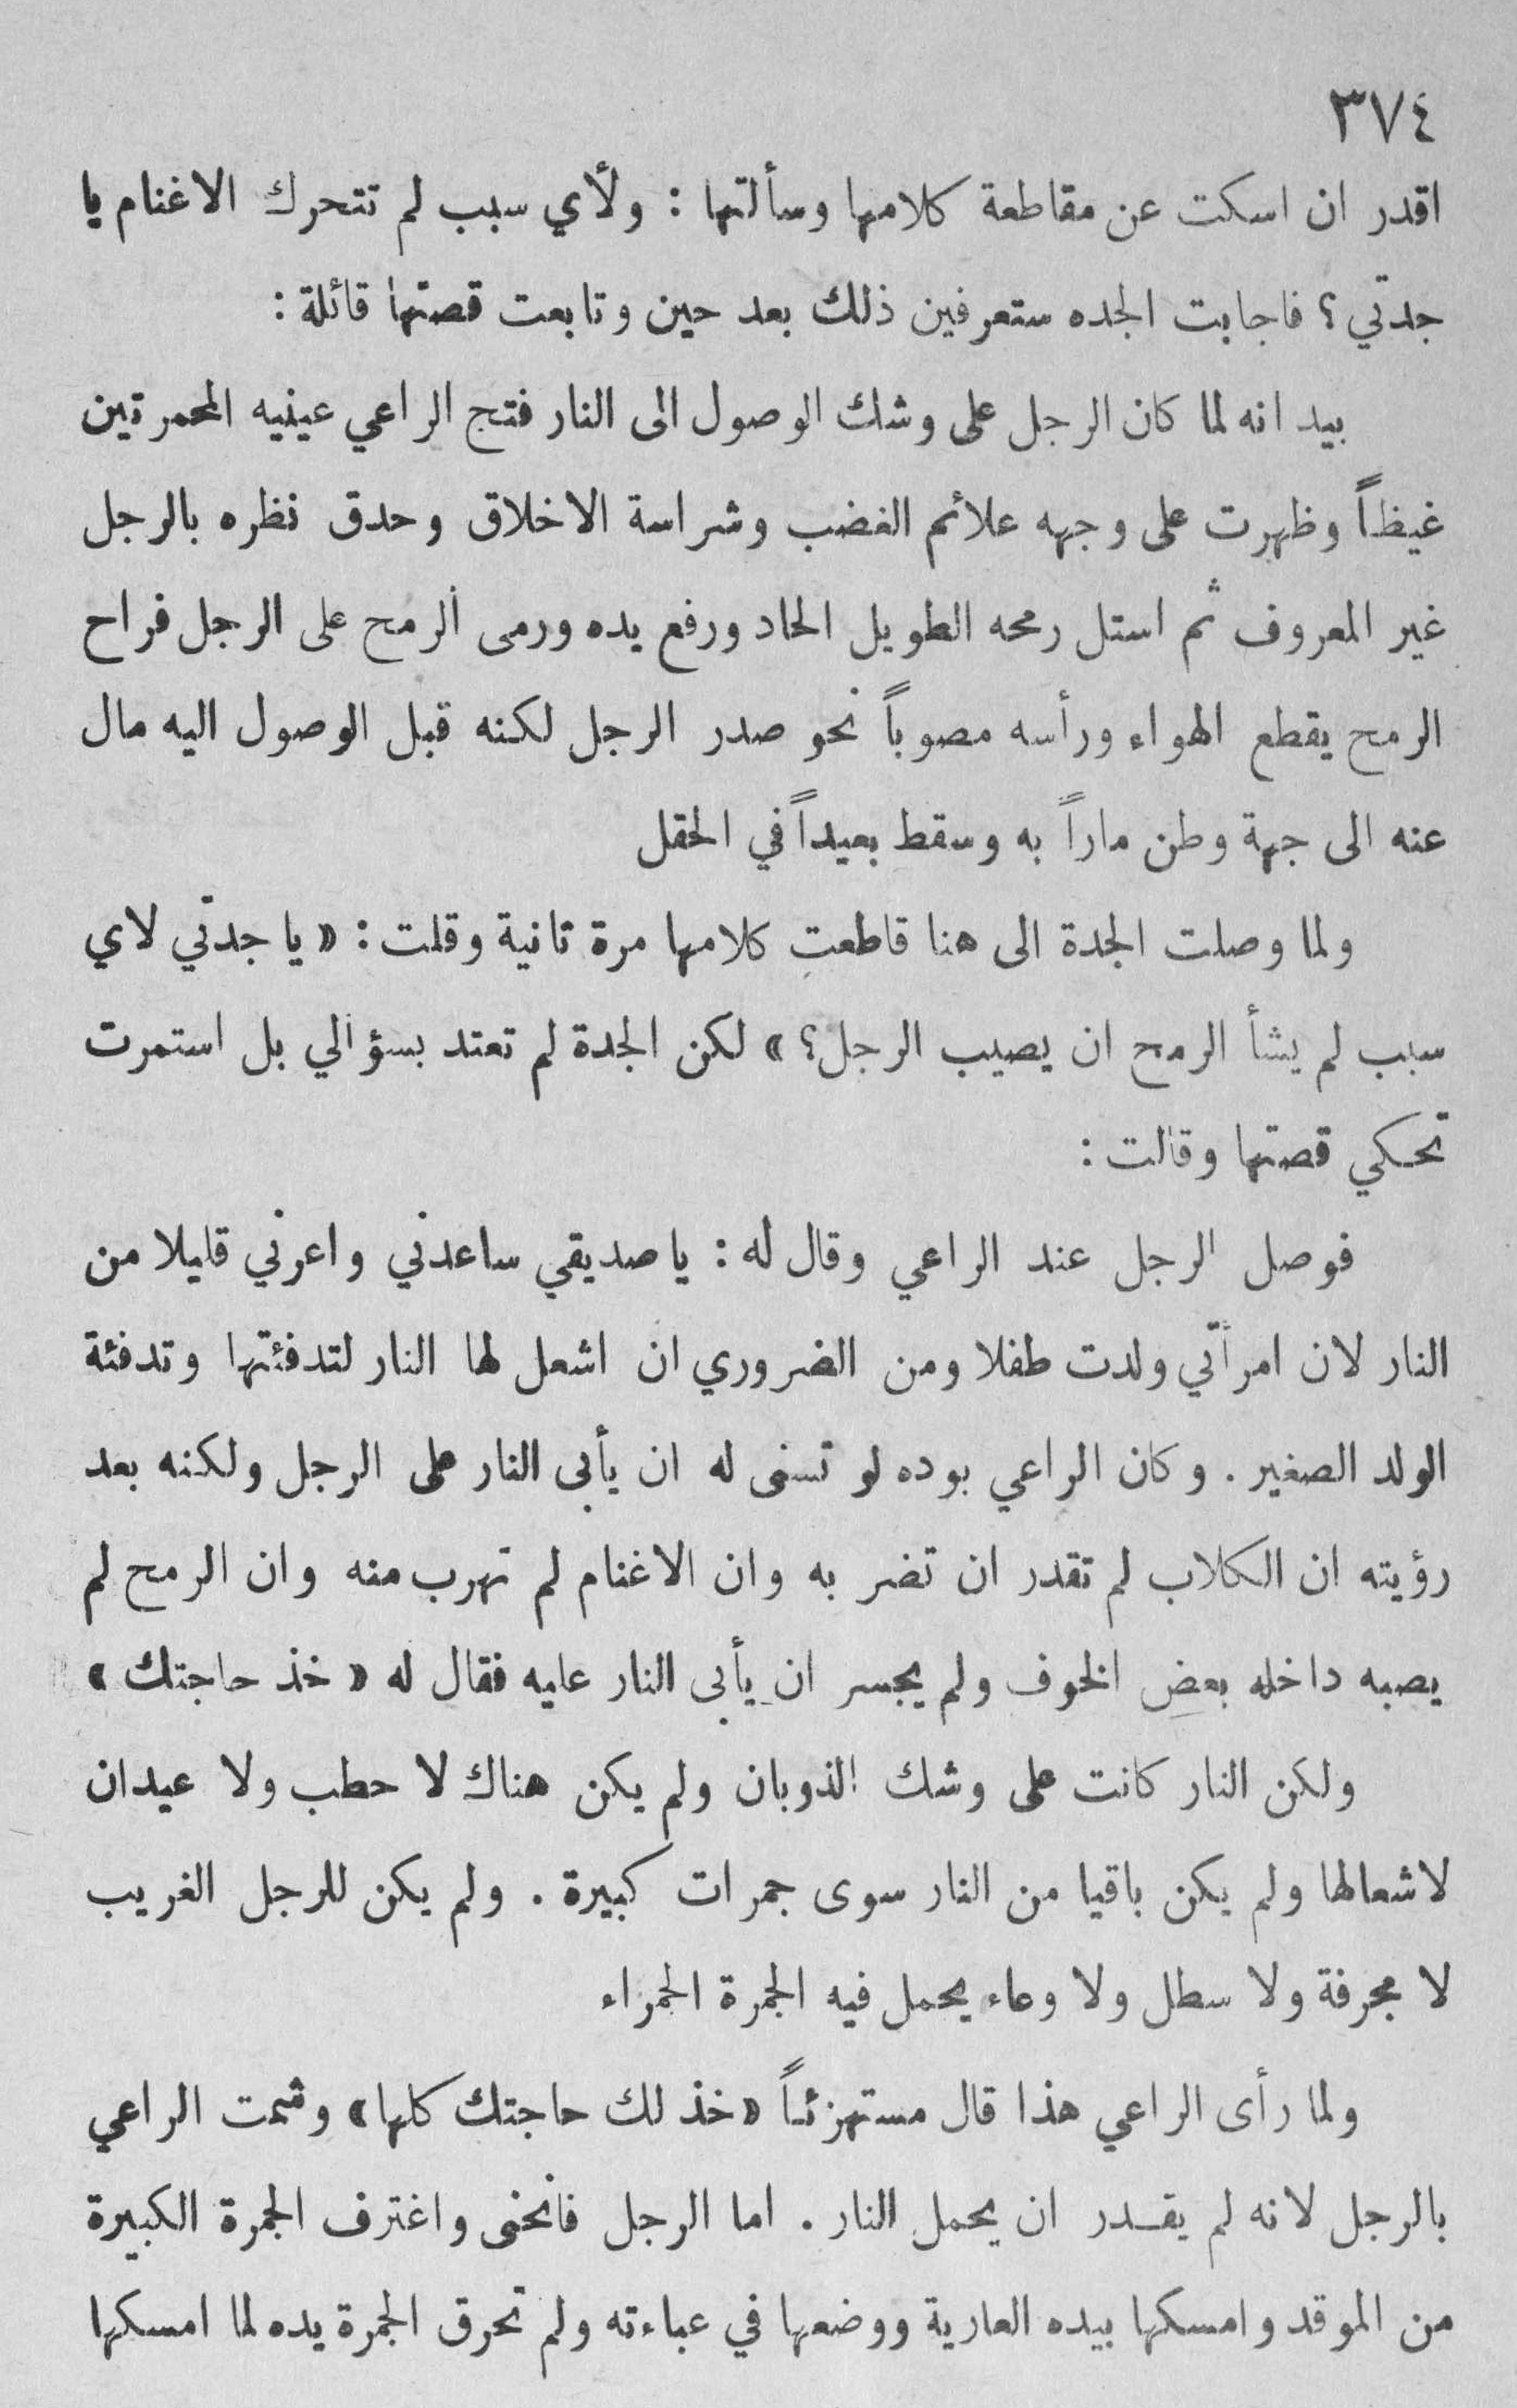 ٣٧٤
اقدر ان اسكت عن مقاطعة كلامها وسألتها : ولأي سبب لم تتحرك الاغنام يا
جدتي؟ فاجابت الجده ستعرفين ذلك بعد حين وتابعت قصتها قائلة :
بيد انه لما كان الرجل على وشك الوصول الى النار فتح الراعي عينيه المحمرتين
غيظاً وظهرت على وجهه علائم الغضب وشراسة الاخلاق وحدق نظره بالرجل
غير المعروف ثم استل رمحه الطويل الحاد ورفع يده ورمى الرمح على الرجل فراح
الرمح يقطع الهواء ورأسه مصوباً نحو صدر الرجل لكنه قبل الوصول اليه مال
عنه الى جهة وطن ماراً به وسقط بعيداً في الحقل
ولما وصلت الجدة الى هنا قاطعت كلامها مرة ثانية وقلت : « يا جدتي لاي
سبب لم يشأ الرمح ان يصيب الرجل؟ » لكن الجدة لم تعتد بسؤالي بل استمرت
تحكي قصتها وقالت :
فوصل الرجل عند الراعي وقال له : يا صديقي ساعدني واعرني قليلا من
النار لان امرأتي ولدت طفلا ومن الضروري ان اشعل لها النار لتدفئتها وتدفئة
الولد الصغير . وكان الراعي بوده لو تسنى له ان يأبى النار على الرجل ولكنه بعد
رؤيته ان الكلاب لم تقدر ان تضر به وان الاغنام لم تهرب منه وان الرمح لم
يصبه داخله بعض الخوف ولم يجسر ان يأبى النار عليه فقال له « خذ حاجتك »
ولكن النار كانت على وشك الذوبان ولم يكن هناك لا حطب ولا عيدان
لاشعالها ولم يكن باقيا من النار سوى جمرات كبيرة . ولم يكن للرجل الغريب
لا مجرفة ولا سطل ولا وعاء يحمل فيه الجمرة الحمراء
ولما رأى الراعي هذا قال مستهزئاً « خذ لك حاجتك كلها » وشمت الراعي
بالرجل لانه لم يقدر ان يحمل النار . اما الرجل فانحنى واغترف الجمرة الكبيرة
من الموقد وامسكها بيده العارية ووضعها في عباءته ولم تحرق الجمرة يده لما امسكها